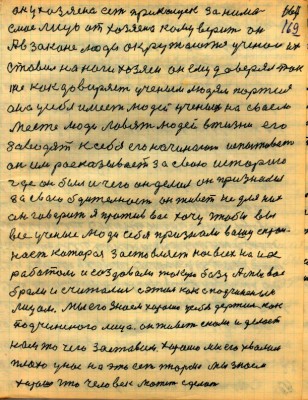 он у хозяена сет приказчек за нима
ет лицо от хозяена кому верит он
Я взаконе люди окружаются ученом их
ставил на ноги хозяен он ему доверял так
же как доверяет ученым людям партия
она у себя имеет людей ученых на своем
месте люди ловят людей втюзни его
заводят к себе его начинают испытовает
он им расказывает за свою историю
где он был и чего он делал он признался
за свою бдительност он живет не для нас
он говорит я против вас хочу чтобы вы
все ученые люди себя признали вашу
ност которая заставляет нас всех на их
работом и создовали базу Амы вас
брали и считали сэтим как сподчинеными
лицам. мы его знаем хорошо себя держим как
подчиненого лица. он живет снами и делает
нам то чего заставим. хорошо мы его хвалим
плохо у нас на это ест тюрмо мы знаем
хорошо что человек может сделат
169